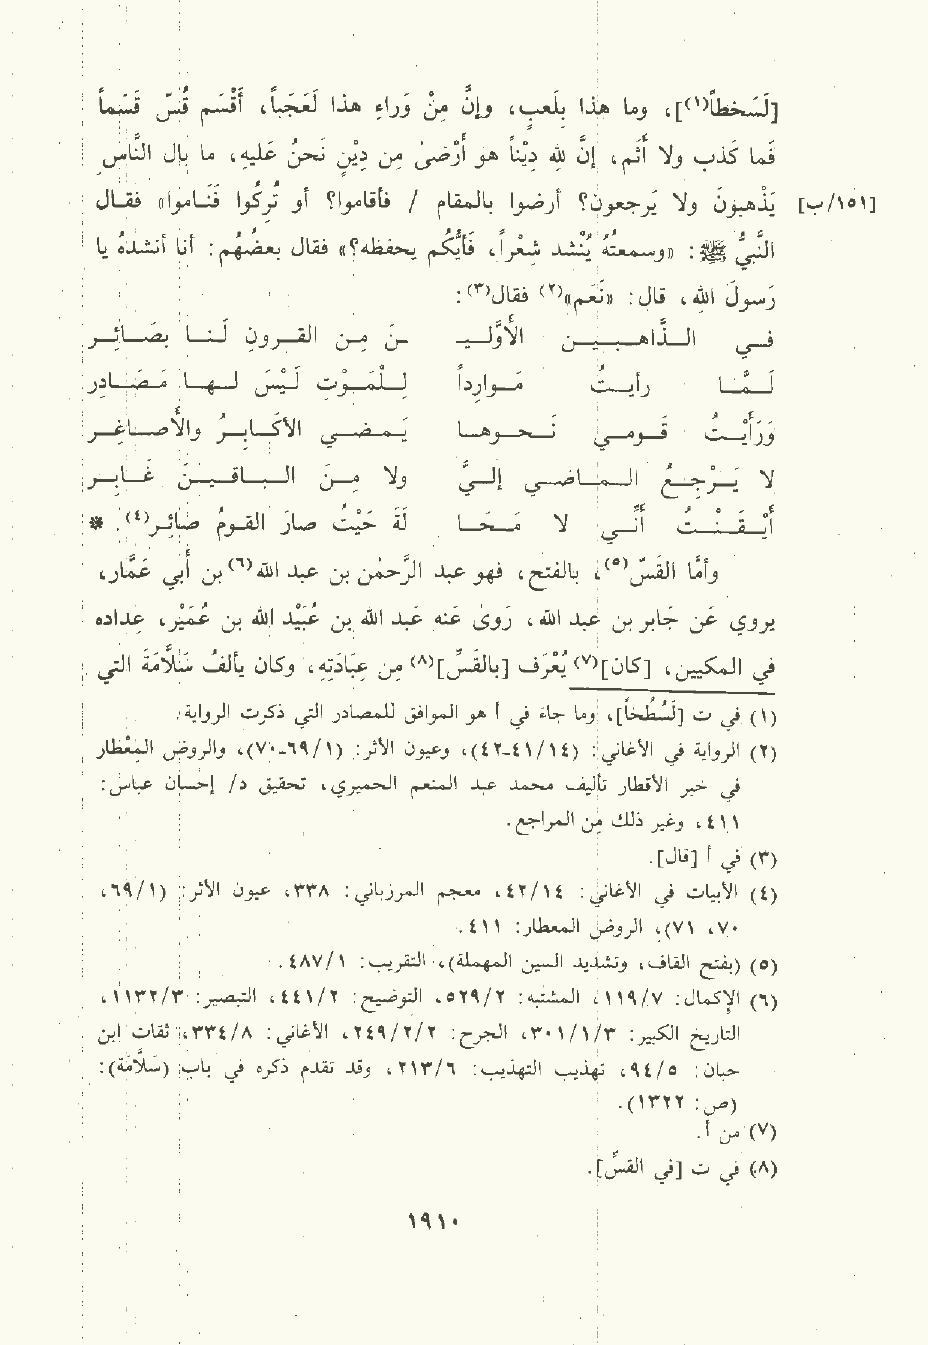 [لَسَخطاً(١)]، وما هذا بلَعِب، وإنَّ مِنْ وَراءِ هذا لَعَجَباً، أَقْسَم قُسّ قَسَماً
فَما كَذب ولا أَثَم، إنَّ لله ديْناً هو أَرْضىٰ من ديْنٍ نَحنُ عَليه، ما بال النَّاسِ
[١٥١/ب] يَذْهبونَ ولا يَرجعون؟ أرضوا بالمقام / فأقاموا؟ أو تُرِكُوا فَنَاموا» فقال
النَّبيُّ ﷺ: «وسمعتُهُ يُنْشد شِعْراً، فَأيُّكُم يحفظه؟» فقال بعضُهُم: أنا أنشدُهُ يا
رَسولَ الله، قال: «نَعَم»(٢) فقال(٣):
في الذَّاهبين الأَوَّليـن مـن القرون لَنا بصَائِر
لَمَّا رأيتُ مَوارِداً لِلْمَوْت لَيْسَ لها مَصَادر
وَرَأَيْتُ قَومي نَحوها يَمضي الأكَابِرُ والأَصاغِر
لا يَرْجِعُ الماضي إليَّ ولا مِنَ الباقيـنَ غَابِر
أَيْقَنْتُ أنِّي لا مَحَا لَةَ حَيْتُ صارَ القومُ صائِر(٤). *
وأمَّا القَسّ(٥)، بالفتح، فهو عبد الرَّحمٰن بن عبد الله(٦) بن أبي عَمَّار،
يروي عَن جَابر بن عبد الله، رَوىٰ عَنه عَبد الله بن عُبَيْد الله بن عُمَيْر، عداده
في المكيين، [كان](٧) يُعْرَف [بالقَسِّ](٨) من عِبَادَتِهِ، وكان يألفُ سَلاَّمَة التي
(١) في ت [لَسُخُطَاً]، وما جاء في أ هو الموافق للمصادر التي ذكرت الرواية.
(٢) الرواية في الأغاني: (١٤/٤١-٤٢)، وعيون الأثر: (١/٦٩-٧٠)، والروض المِعْطار
في خبر الأقطار تأليف محمد عبد المنعم الحميري، تحقيق د/ إحسان عباس:
٤١١، وغير ذلك من المراجع.
(٣) في أ [قال].
(٤) الأبيات في الأغاني: ١٤/٤٢، معجم المرزباني: ٣٣٨، عيون الأثر: (١/٦٩،
٧٠، ٧١)، الروض المعطار: ٤١١.
(٥) (بفتح القاف، وتشديد السين المهملة)، التقريب: ١/٤٨٧.
(٦) الإكمال: ٧/١١٩، المشتبه: ٢/٥٢٩، التوضيح: ٢/٤٤١، التبصير: ٣/١١٣٢،
التاريخ الكبير: ٣/١/٣٠١، الجرح: ٢/٢/٢٤٩، الأغاني: ٨/٣٣٤، ثقات ابن
حبان: ٥/٩٤، تهذيب التهذيب: ٦/٢١٣، وقد تقدم ذكره في باب (سَلاَّمَة):
(ص: ١٣٢٢).
(٧) من أ.
(٨) في ت [في القَسِّ].
١٩١٠